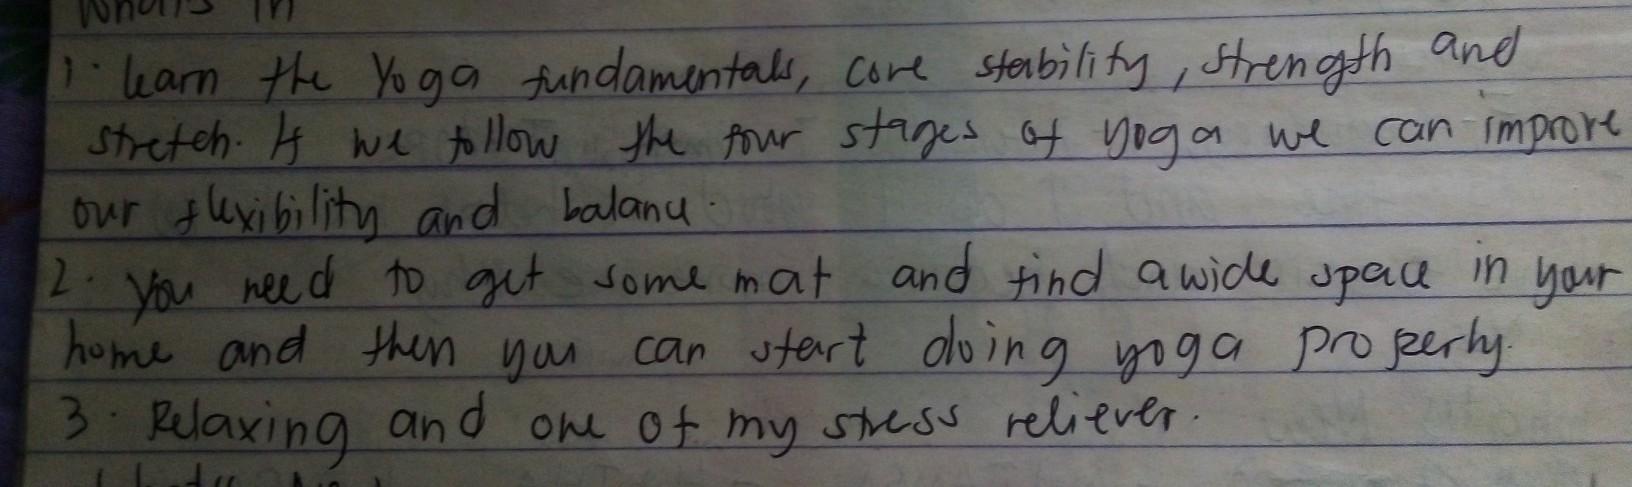 What's in
1. learn the Yoga fundamentals, core stability, strength and
stretch. If we follow the four stages of yoga we can improve
our flexibility and balance.
2. You need to get some mat and find a wide space in your
home and then you can start doing yoga properly.
3. Relaxing and one of my stress reliever.